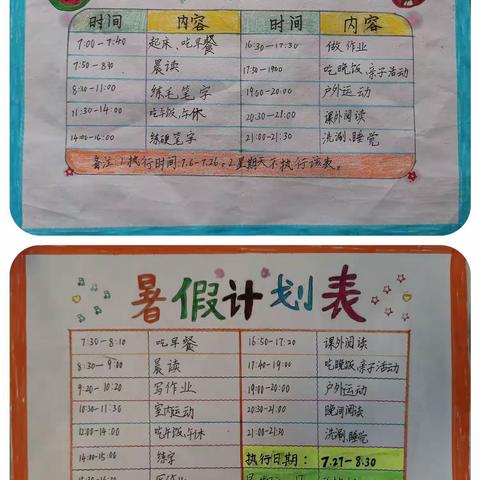 时间 内容 时间 内容
7:00-7:40 起床、吃早餐 16:30-17:30 做作业
7:50-8:30 晨读 17:30-19:00 吃晚饭、亲子活动
8:30-11:00 练毛笔字 19:00-20:00 户外运动
11:30-14:00 吃午饭、午休 20:30-21:00 课外阅读
14:00-16:00 练硬笔字 21:00-21:30 洗涮、睡觉
备注:1.执行时间:7.6-7.26;2.星期天不执行该表。
暑假计划表
7:30-8:10 吃早餐 16:50-17:20 课外阅读
8:30-9:00 晨读 17:40-19:00 吃晚饭、亲子活动
9:20-10:20 写作业 19:00-20:00 户外运动
10:30-11:30 室内运动 20:30-21:00 晚间阅读
12:00-14:00 吃午饭、午休 21:00-21:30 洗涮、睡觉
14:00-15:00 练字 执行日期: 7.27-8.30